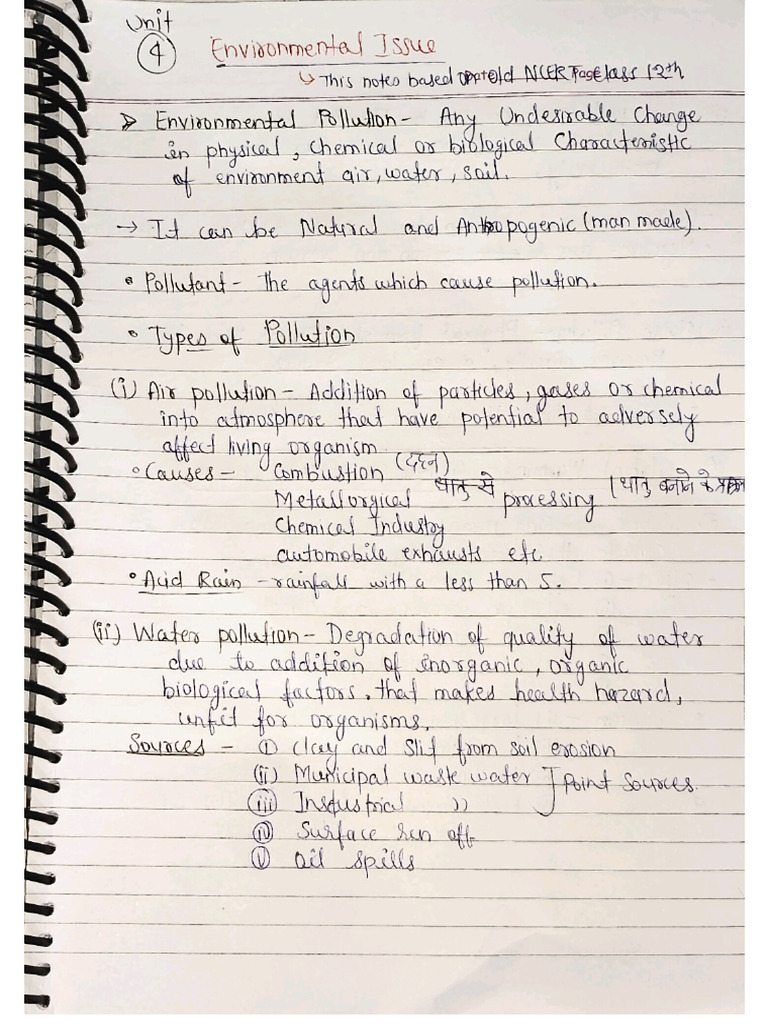 Unit
4 Environmental Issue
↳ This notes based old NCERT class 12th
➢ Environmental Pollution - Any Undesirable Change
in physical, chemical or biological Characteristic
of environment air, water, soil.
→ It can be Natural and Anthropogenic (man made).
• Pollutant - The agents which cause pollution.
• Types of Pollution
(i) Air pollution - Addition of particles, gases or chemical
into atmosphere that have potential to adversely
affect living organism
• Causes - Combustion (दहन)
Metallorgical धातु से processing (धातु बनाने के
Chemical Industry
automobile exhausts etc
• Acid Rain - rainfall with a less than 5.
(ii) Water pollution - Degradation of quality of water
due to addition of inorganic, organic
biological factors. that makes health hazard,
unfit for organisms.
Sources - (i) Clay and Slit from soil erosion
(ii) Municipal waste water ] Point Sources.
(iii) Insdustrial 〃
(iv) Surface run off
(v) oil spills